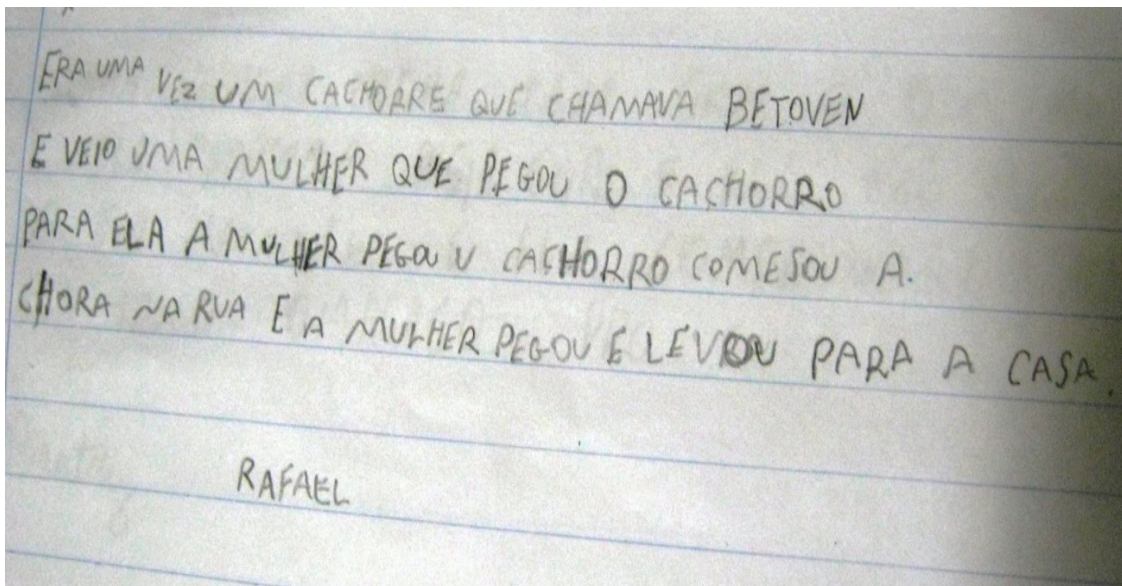 ERA UMA VEZ UM CACHORRE QUE CHAMAVA BETOVEN
E VEIO UMA MULHER QUE PEGOU O CACHORRO
PARA ELA A MULHER PEGOU U CACHORRO COMESOU A.
CHORA NA RUA E A MULHER PEGOU E LEVOU PARA A CASA.
RAFAEL